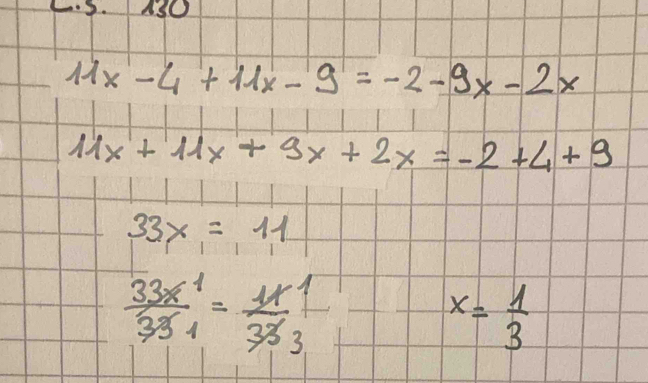 130
11x - 4 + 11x - 9 = -2 - 9x - 2x
11x + 11x + 9x + 2x = -2 + 4 + 9
33x = 11
33x 1 / 33 1 = 11 1 / 33 3 x = 1/3